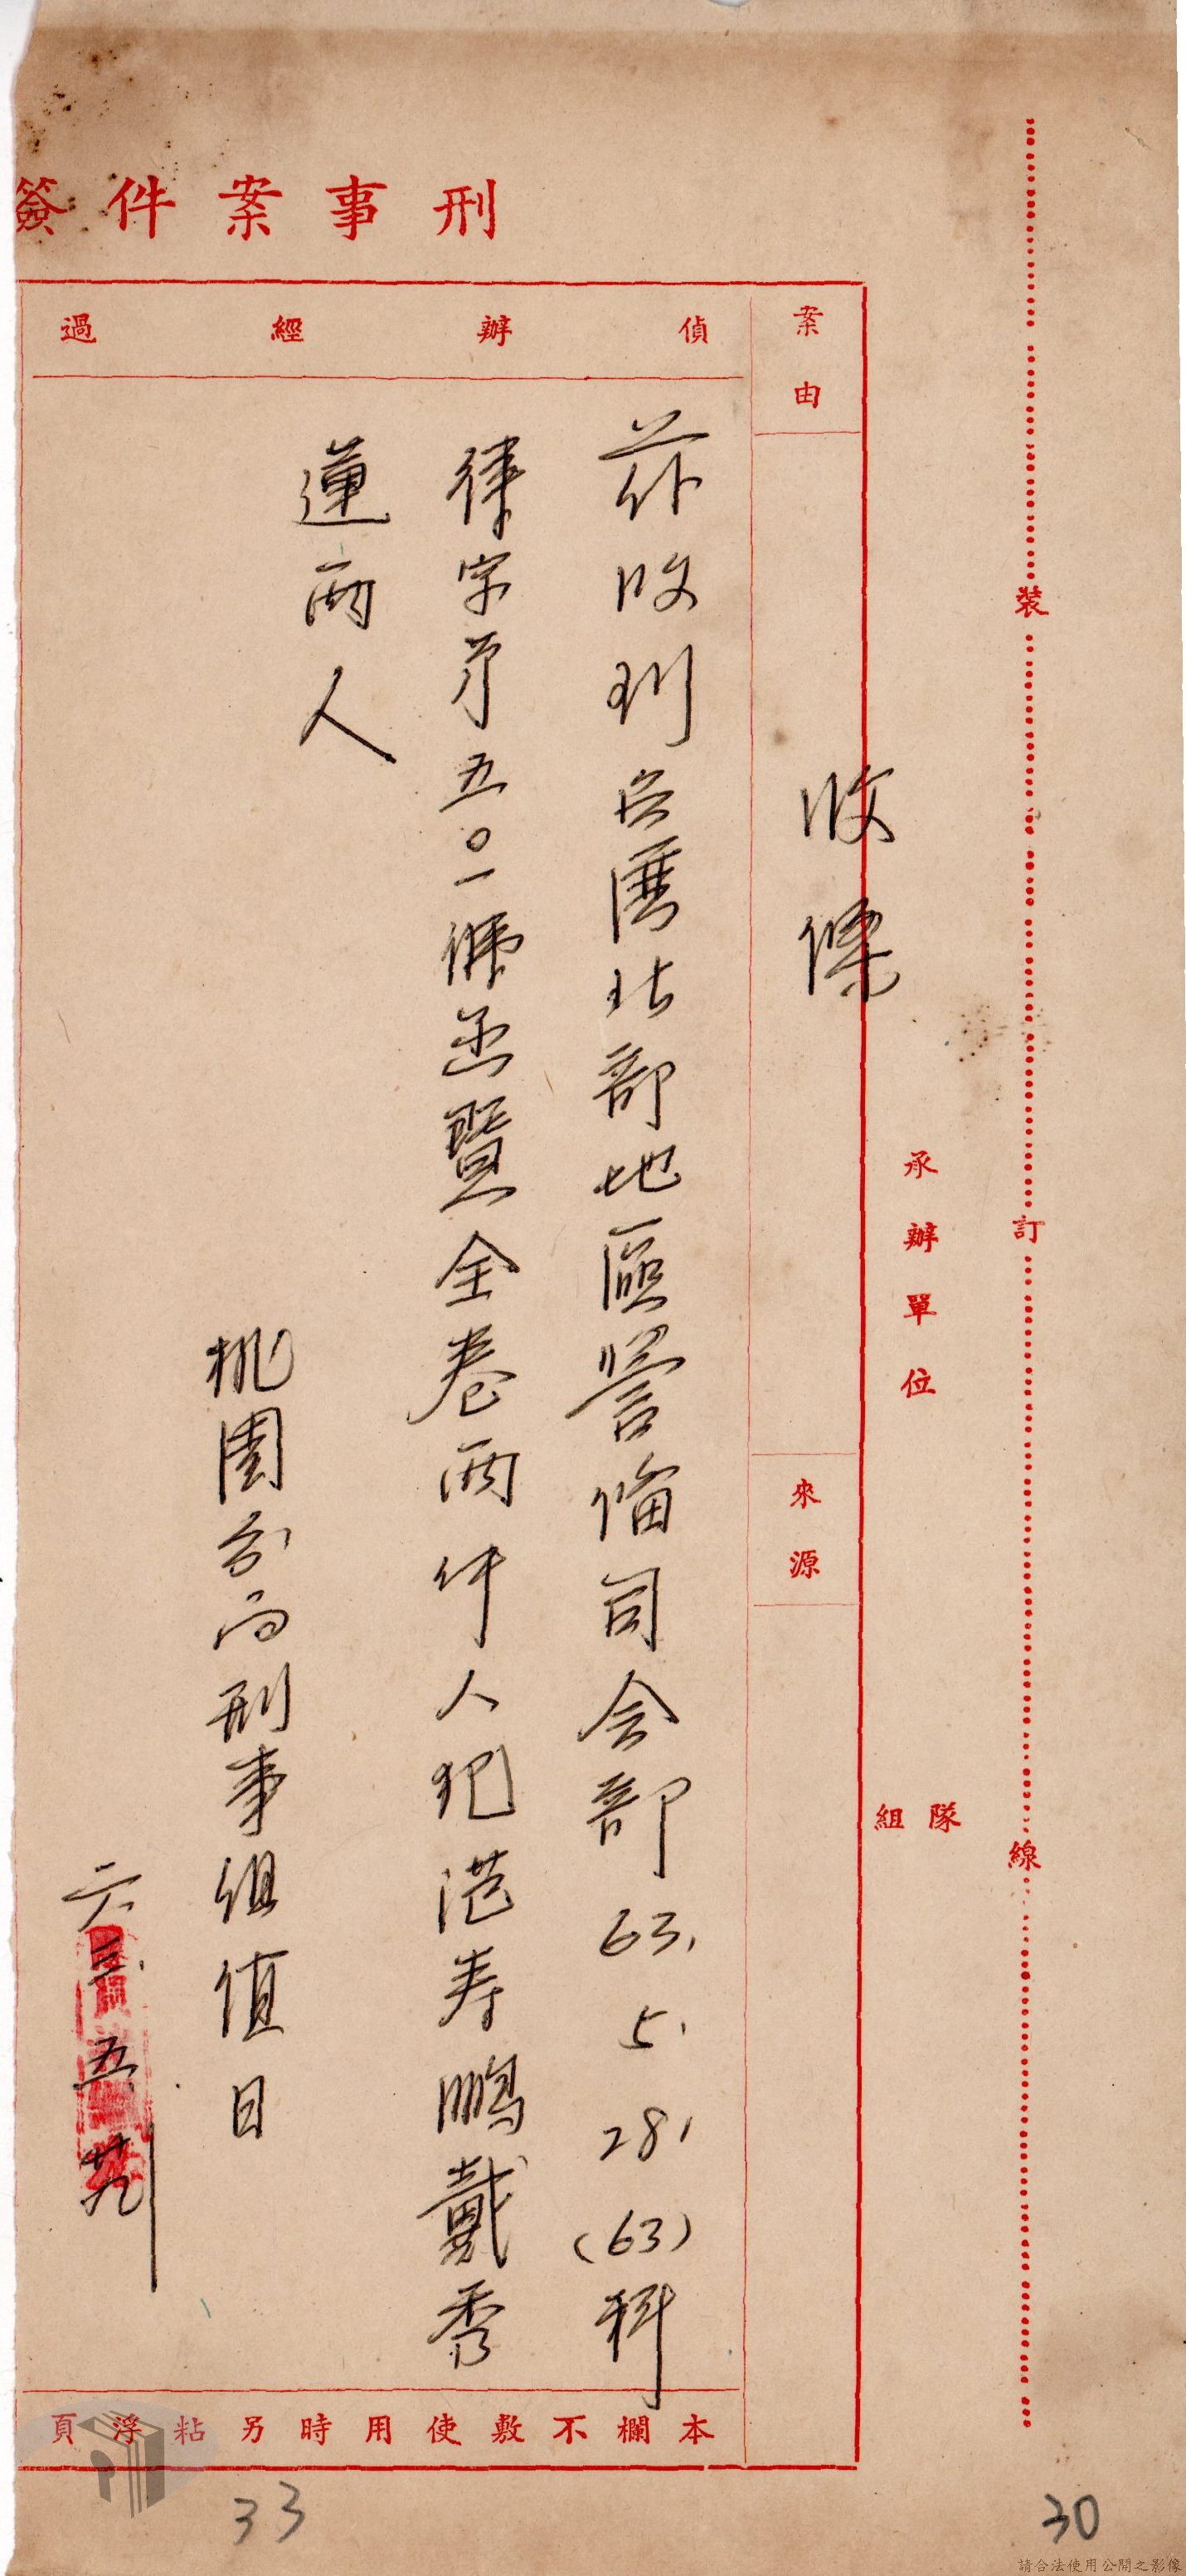 刑事案件簽
裝
訂
線
承辦單位
隊
組
案由
來源
收條
偵辦經過
茲收到台灣北部地區警備司令部63.5.28.(63)科
律字第五〇一號函暨全卷兩件人犯范寿鵬戴秀
蓮兩人
桃園分局刑事組值日
六三.五.廿九
本欄不敷使用時另粘浮頁
33
30
請合法使用公開之影像